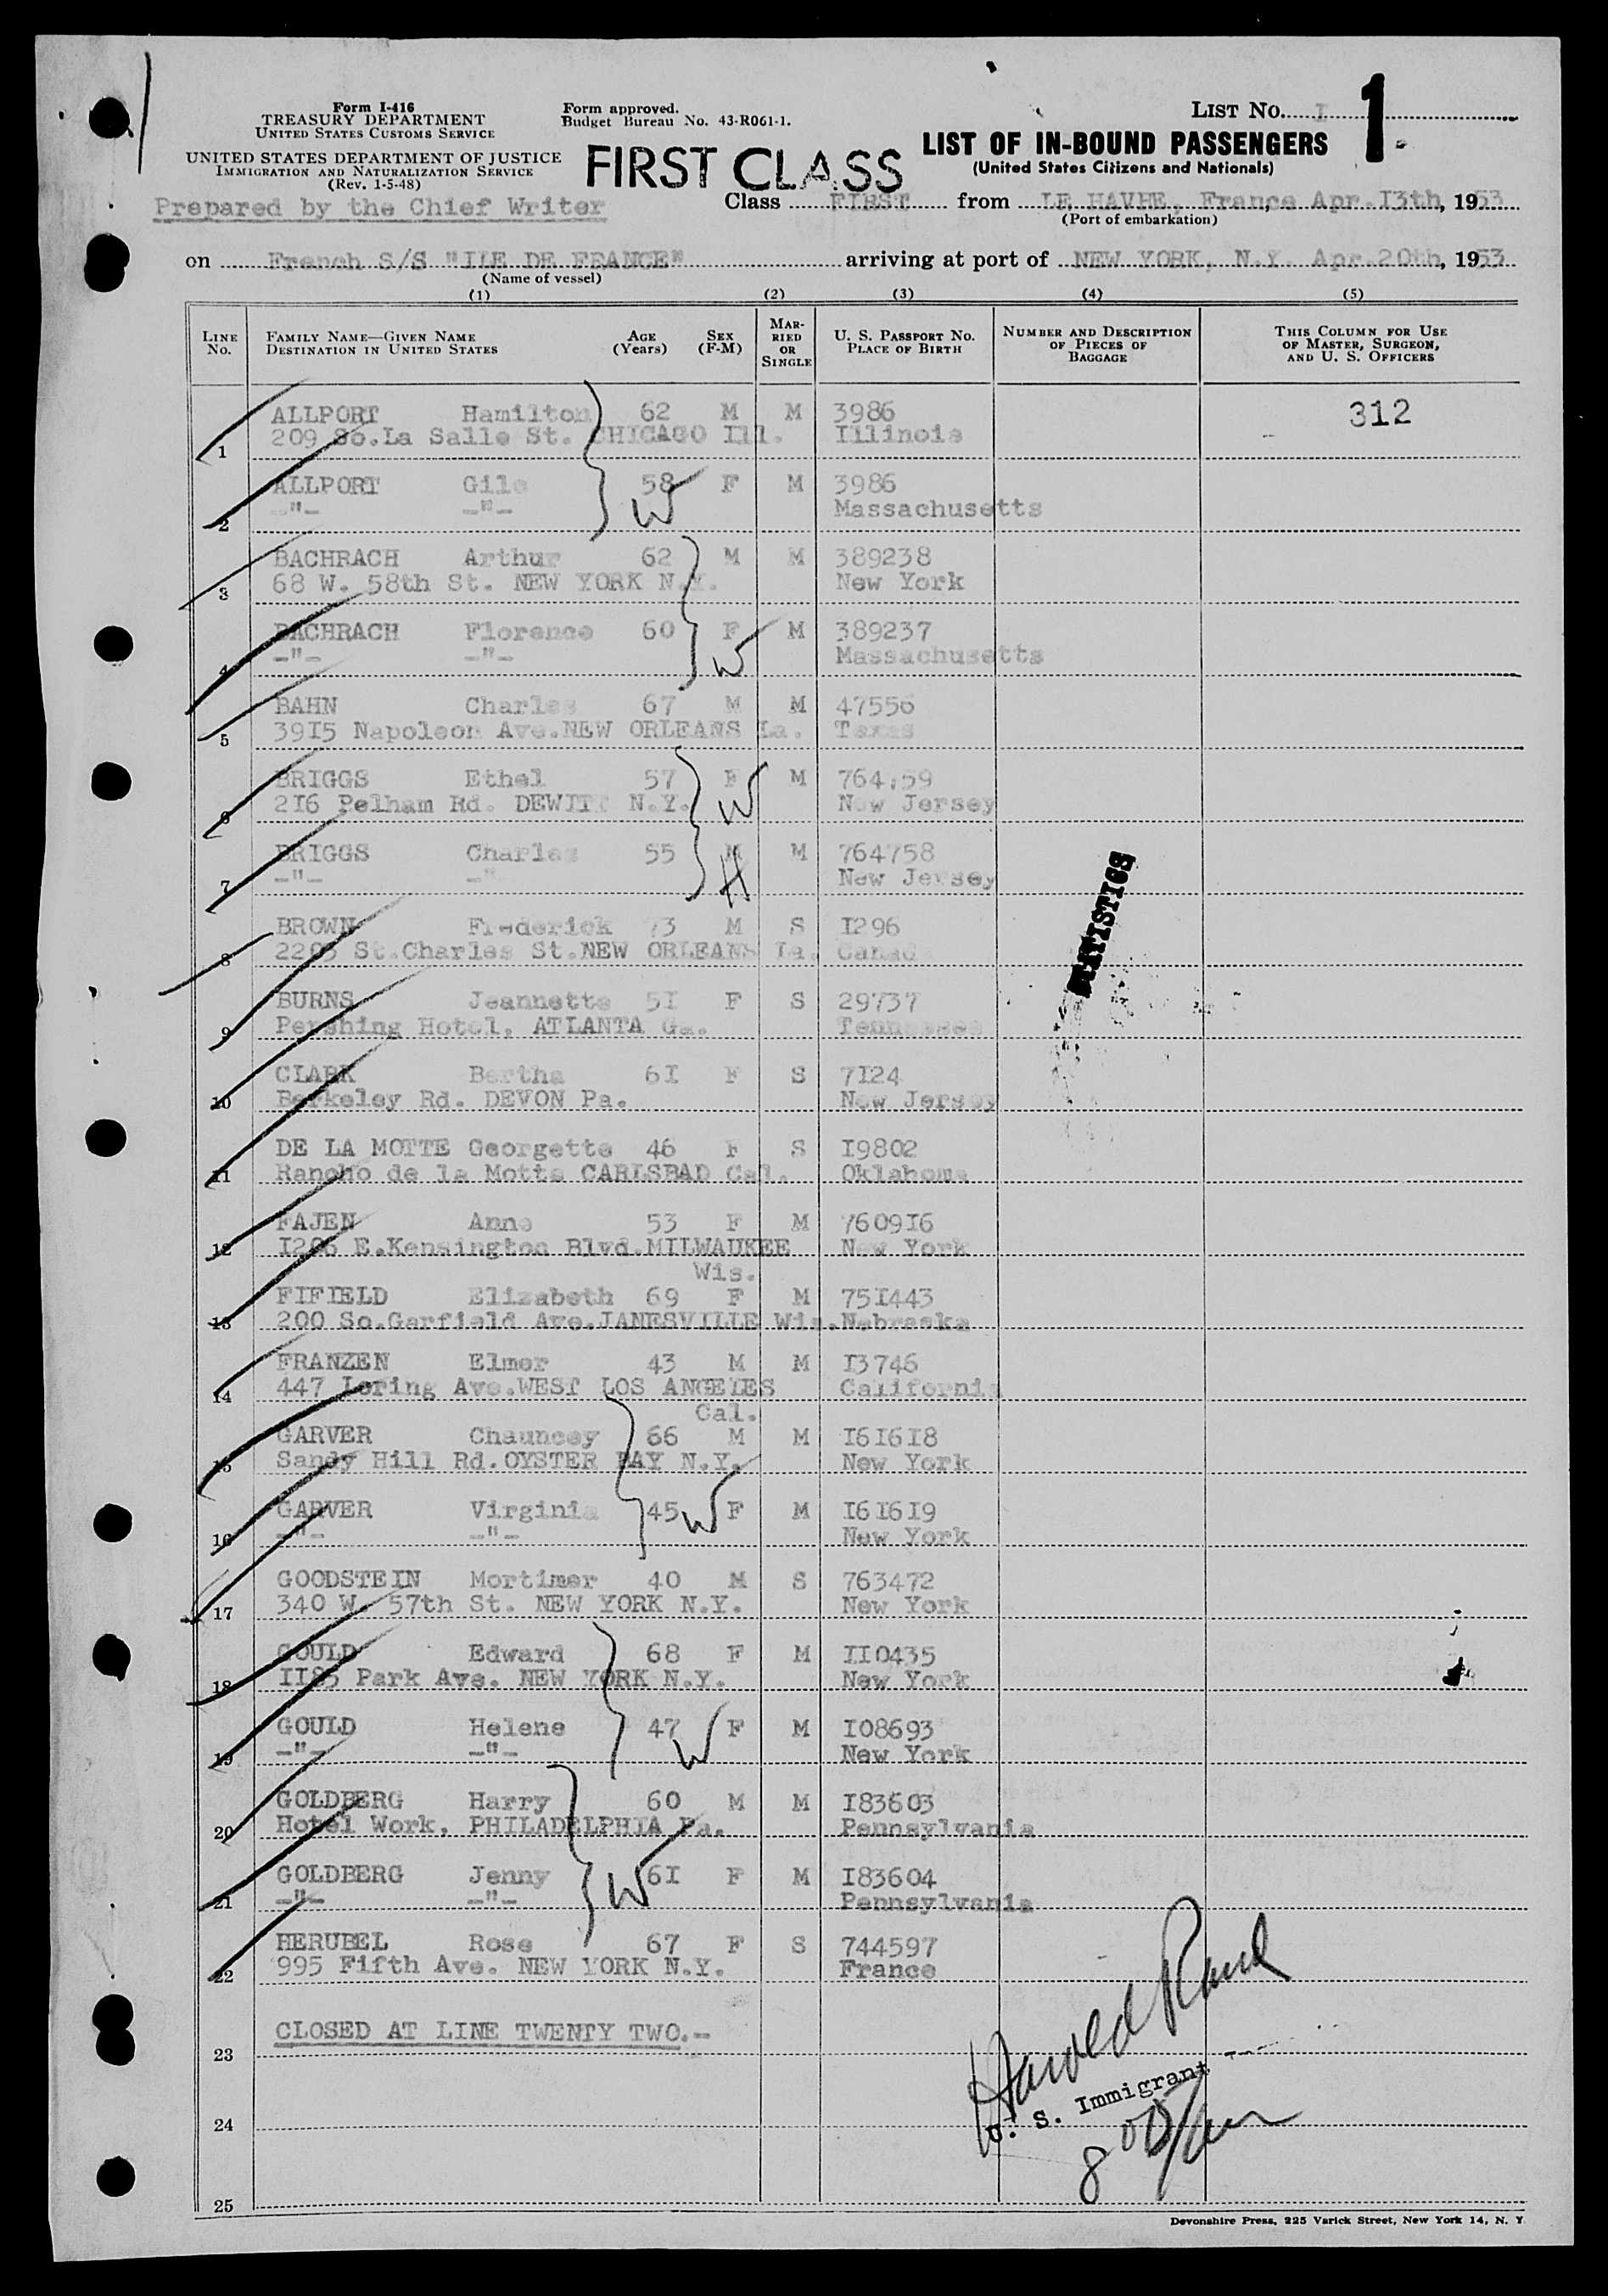 Form I-416
TREASURY DEPARTMENT
UNITED STATES CUSTOMS SERVICE
UNITED STATES DEPARTMENT OF JUSTICE
IMMIGRATION AND NATURALIZATION SERVICE
(Rev. 1-5-48)
Form approved.
Budget Bureau No. 43-R061-1.
LIST No. I 1
LIST OF IN-BOUND PASSENGERS
(United States Citizens and Nationals)
FIRST CLASS
Prepared by the Chief Writer
Class FIRST from LE HAVRE, France Apr.I3th, 1953
(Port of embarkation)
on French S/S "ILE DE FRANCE" arriving at port of NEW YORK, N.Y. Apr.20th, 1953
(Name of vessel)
(1) (2) (3) (4) (5)
LINE No. FAMILY NAME—GIVEN NAME DESTINATION IN UNITED STATES AGE (Years) SEX (F-M) MARRIED OR SINGLE U. S. PASSPORT NO. PLACE OF BIRTH NUMBER AND DESCRIPTION OF PIECES OF BAGGAGE THIS COLUMN FOR USE OF MASTER, SURGEON, AND U. S. OFFICERS
ALLPORT Hamilton 62 M M 3986 312
1 209 So.La Salle St. CHICAGO Ill. Illinois
ALLPORT Gile 58 F M 3986
W
2 -"- -"- Massachusetts
BACHRACH Arthur 62 M M 389238
3 68 W. 58th St. NEW YORK N.Y. New York
BACHRACH Florence 60 F M 389237
4 -"- -"- W Massachusetts
BAHN Charles 67 M M 47556
5 39I5 Napoleon Ave.NEW ORLEANS La. Texas
BRIGGS Ethel 57 F M
6 2I6 Pelham Rd. DEWITT N.Y. W New Jersey
BRIGGS Charles 55 M M 764758
7 -"- -" H New Jersey
BROWN Frederick 73 M S I296
8 St.Charles St.NEW ORLEANS La. Canada
BURNS Jeannette 5I F S 29737
9 Pershing Hotel, ATLANTA Ga. Tennessee
CLARK Bertha 6I F S 7I24
10 Berkeley Rd. DEVON Pa. New Jersey
DE LA MOTTE Georgette 46 F S I9802
11 Rancho de la Motte CARLSBAD Cal. Oklahoma
FAJEN Anne 53 F M 7609I6
12 I206 E.Kensington Blvd.MILWAUKEE New York
Wis.
FIFIELD Elizabeth 69 F M 75I443
13 200 So.Garfield Ave.JANESVILLE Wis.Nebraska
FRANZEN Elmer 43 M M I3746
14 447 Loring Ave.WEST LOS ANGELES California
Cal.
GARVER Chauncey 66 M M I6I6I8
15 Sandy Hill Rd.OYSTER BAY N.Y. New York
GARVER Virginia 45 W F M I6I6I9
16 -"- -"- New York
GOODSTEIN Mortimer 40 M S 763472
17 340 W. 57th St. NEW YORK N.Y. New York
GOULD Edward 68 F M II0435
18 II85 Park Ave. NEW YORK N.Y. New York
GOULD Helene 47 W F M I08693
19 -"- -"- New York
GOLDBERG Harry 60 M M I83603
20 Hotel Work, PHILADELPHIA Pa. Pennsylvania
GOLDBERG Jenny W 6I F M I83604
21 -"- -"- Pennsylvania
HERUBEL Rose 67 F S 744597
22 995 Fifth Ave. NEW YORK N.Y. France
CLOSED AT LINE TWENTY TWO.--
23
24
25
STATISTICS
Harold
U. S. Immigrant
Devonshire Press, 225 Varick Street, New York 14, N. Y.